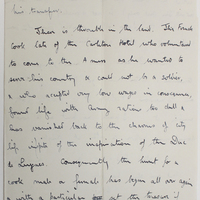 his transfer.
There is trouble in the land. The French
cook late of the Carlton Hotel who volunteered
to come to the A mess as he wanted to
serve his country & could not be a soldier,
& who accepted very low wages in consequence,
found life with Army rations too dull &
has vanished back to the charms of city
life inspite of the inspiration of this Duc
de Luynes. Consequently the hunt for a
cook male or female has begun all over again